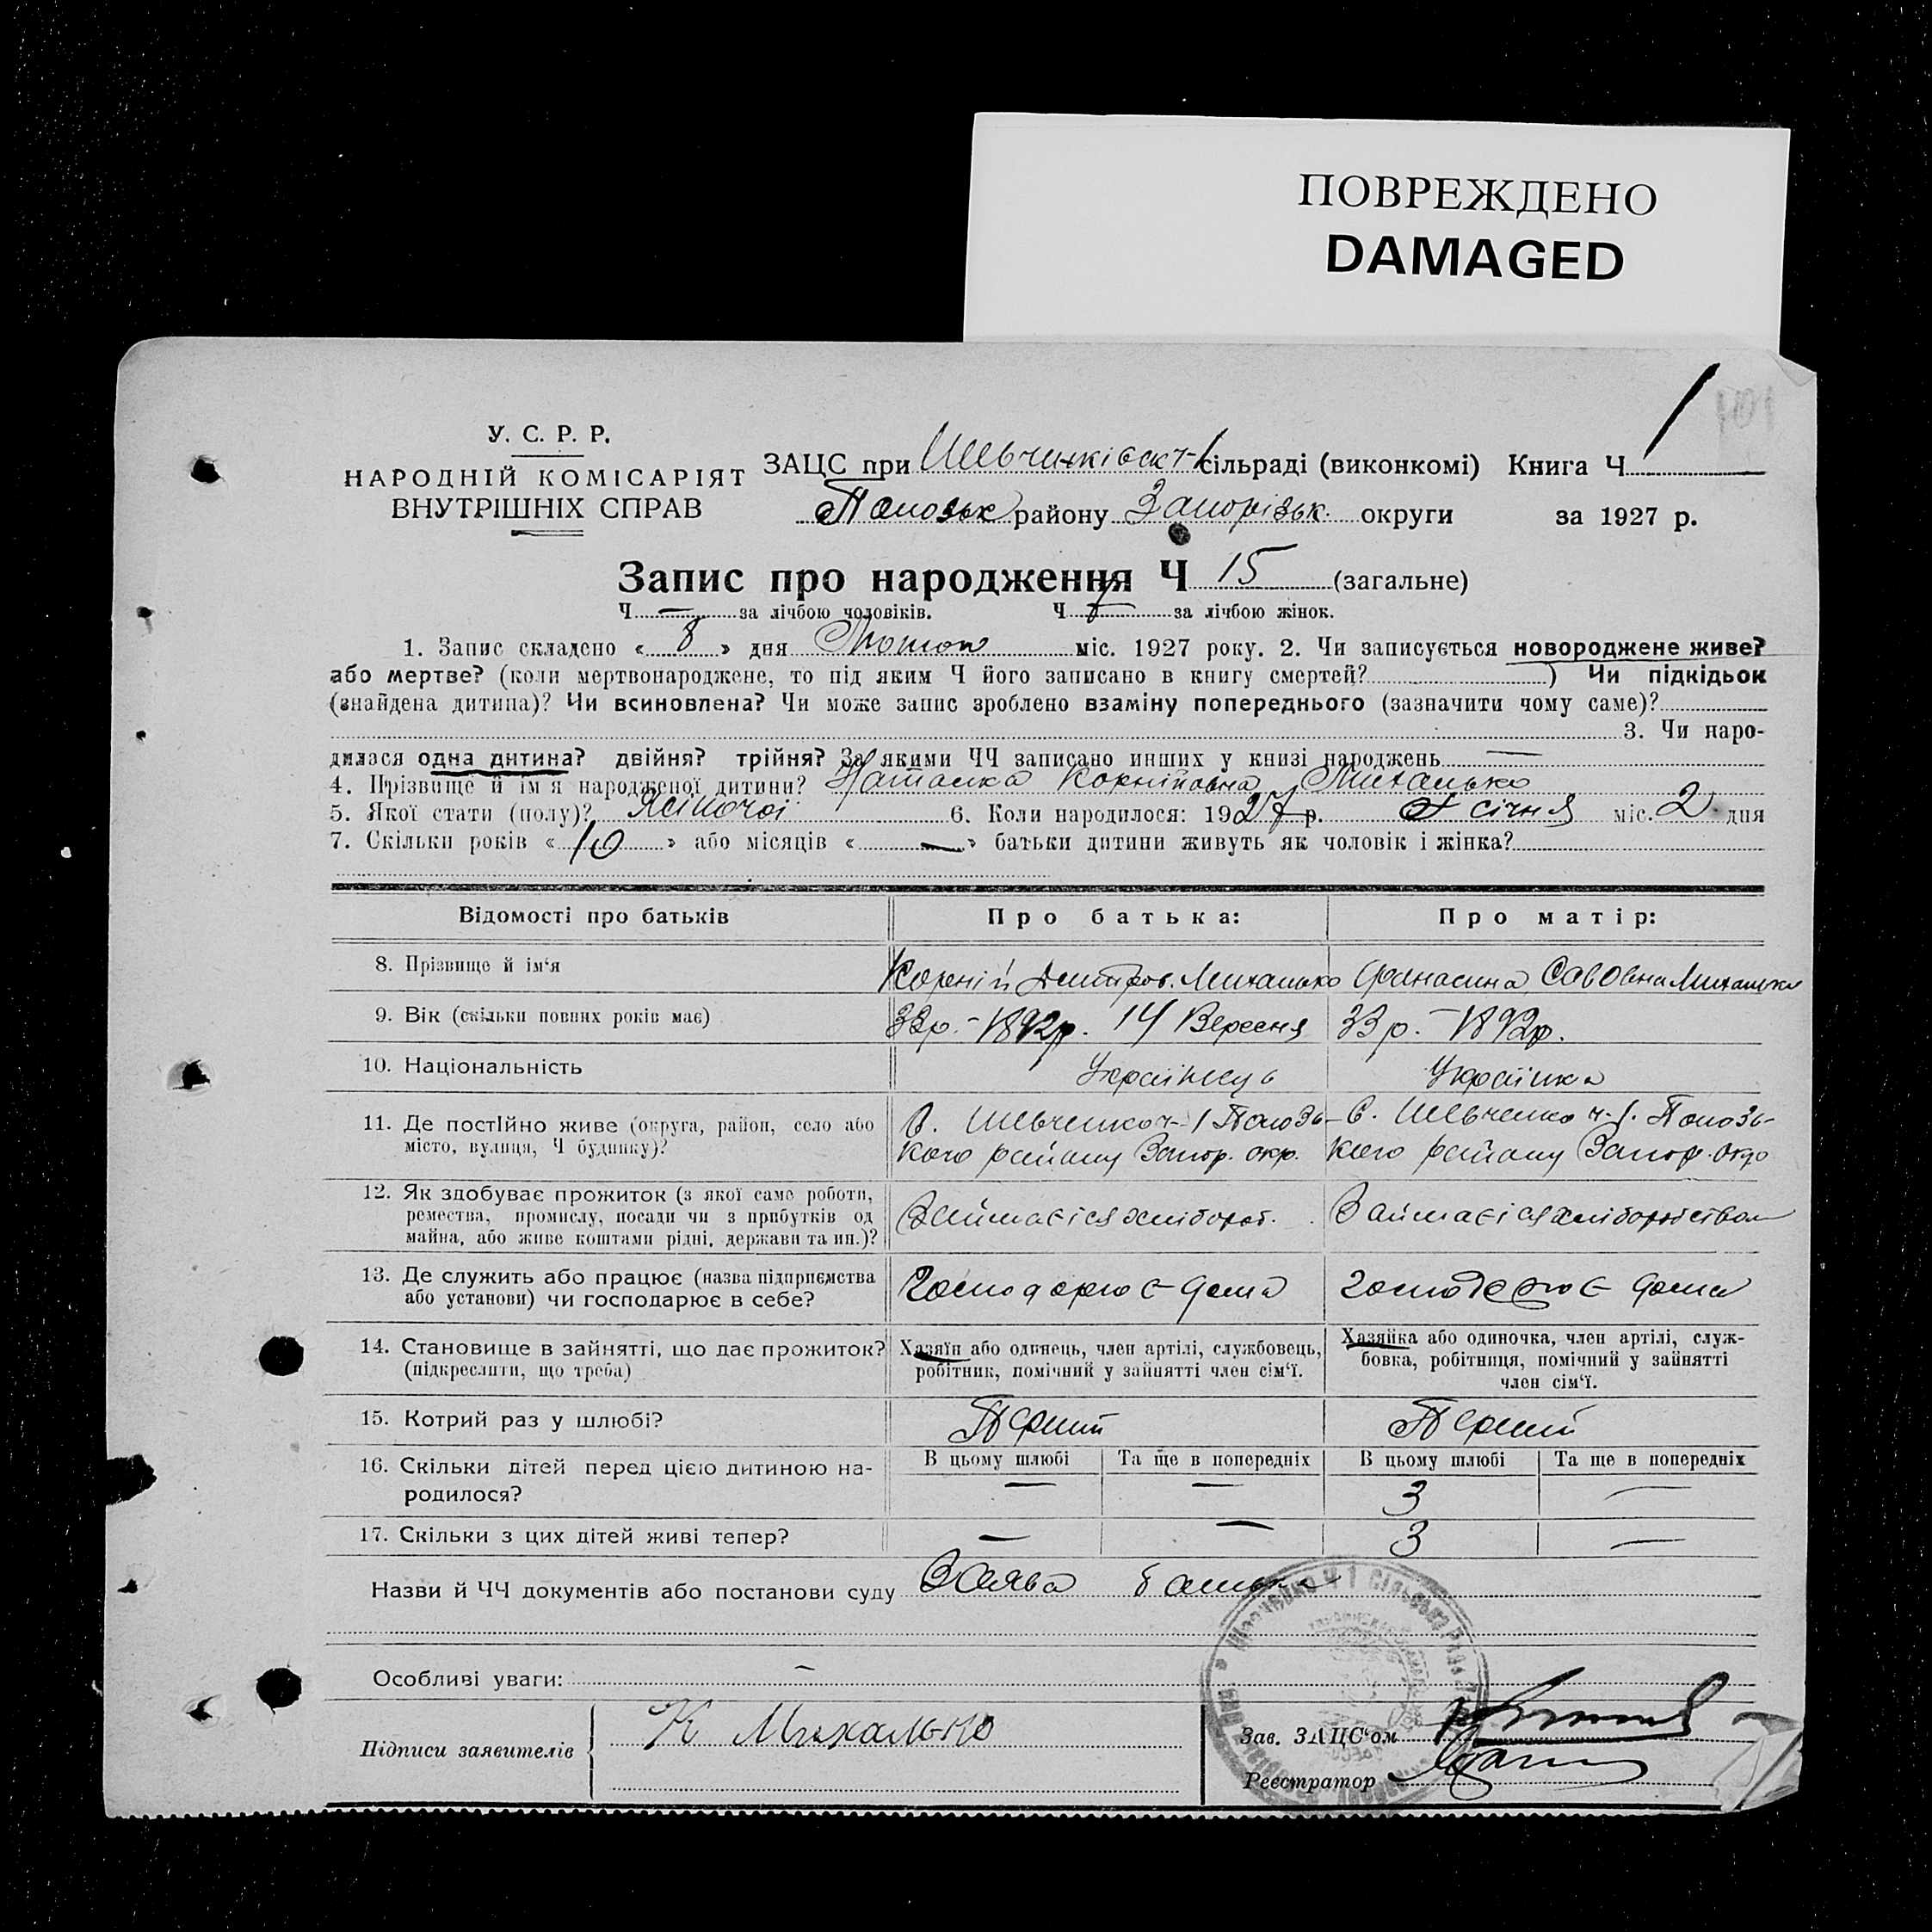 ПОВРЕЖДЕНО
DAMAGED
У. С. Р. Р.
НАРОДНІЙ КОМІСАРІЯТ
ВНУТРІШНІХ СПРАВ
ЗАЦС при Шевченківськ ч-1 сільраді (виконкомі) Книга Ч 1
Пологськ району Запорізьк. округи за 1927 р.
Запис про народження Ч 15 (загальне)
Ч — за лічбою чоловіків. Ч 7 за лічбою жінок.
1. Запис складено « 8 » дня Лютого міс. 1927 року. 2. Чи записується новороджене живе?
або мертве? (коли мертвонароджене, то під яким Ч його записано в книгу смертей? ) Чи підкідьок
(знайдена дитина)? Чи всиновлена? Чи може запис зроблено взаміну попереднього (зазначити чому саме)?
3. Чи наро-
дилася одна дитина? двійня? трійня? За якими ЧЧ записано инших у книзі народжень —
4. Прізвище й ім'я народженої дитини? Наталка Корніївна Михалько
5. Якої стати (полу)? Жіночої 6. Коли народилося: 1927 р. січня міс. 2 дня
7. Скільки років « 10 » або місяців « — » батьки дитини живуть як чоловік і жінка?
Відомості про батьків Про батька: Про матір:
8. Прізвище й ім'я Корній Дмитров. Михалько Саввовна Михалько
9. Вік (скільки повних років має) 33р. – 1892р. 14 Вересня 33р. – 1892р.
10. Національність Українець Українка
11. Де постійно живе (округа, район, село або
місто, вулиця, Ч будинку)?
С. Шевченко ч-1 Пологь-
кого району Запор. окр.
С. Шевченко ч-1. Пологь-
кого району Запор. Окр
12. Як здобуває прожиток (з якої саме роботи,
ремества, промислу, посади чи з прибутків од
майна, або живе коштами рідні, держави та ин.)?
Займаєтся хлібороб.
Займаєтся хліборобством
13. Де служить або працює (назва підприємства
або установи) чи господарює в себе?
Господарює дома
Господарює дома
14. Становище в зайнятті, що дає прожиток?
(підкреслити, що треба)
Хазяїн або одинець, член артілі, службовець,
робітник, помічний у зайнятті член сім'ї.
Хазяйка або одиночка, член артілі, служ-
бовка, робітниця, помічний у зайнятті
член сім'ї.
15. Котрий раз у шлюбі? Перший Перший
16. Скільки дітей перед цією дитиною на-
родилося?
В цьому шлюбі Та ще в попередніх В цьому шлюбі Та ще в попередніх
— — 3 —
17. Скільки з цих дітей живі тепер? — — 3 —
Назви й ЧЧ документів або постанови суду Заява батька
Особливі уваги: –
Підписи заявителів К Михалько
Зав. ЗАЦС'ом
Реєстратор